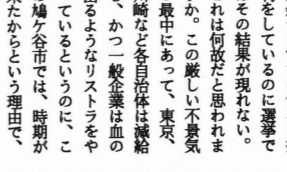 をしているのに選挙で
その結果が現れない。
れは何故だと思われま
か。この厳しい不景気
最中にあって、東京、
崎など各自治体は減給
、かつ一般企業は血の
るようなリストラをや
ているというのに、こ
鳩ケ谷市では、時期が
来たからという理由で、